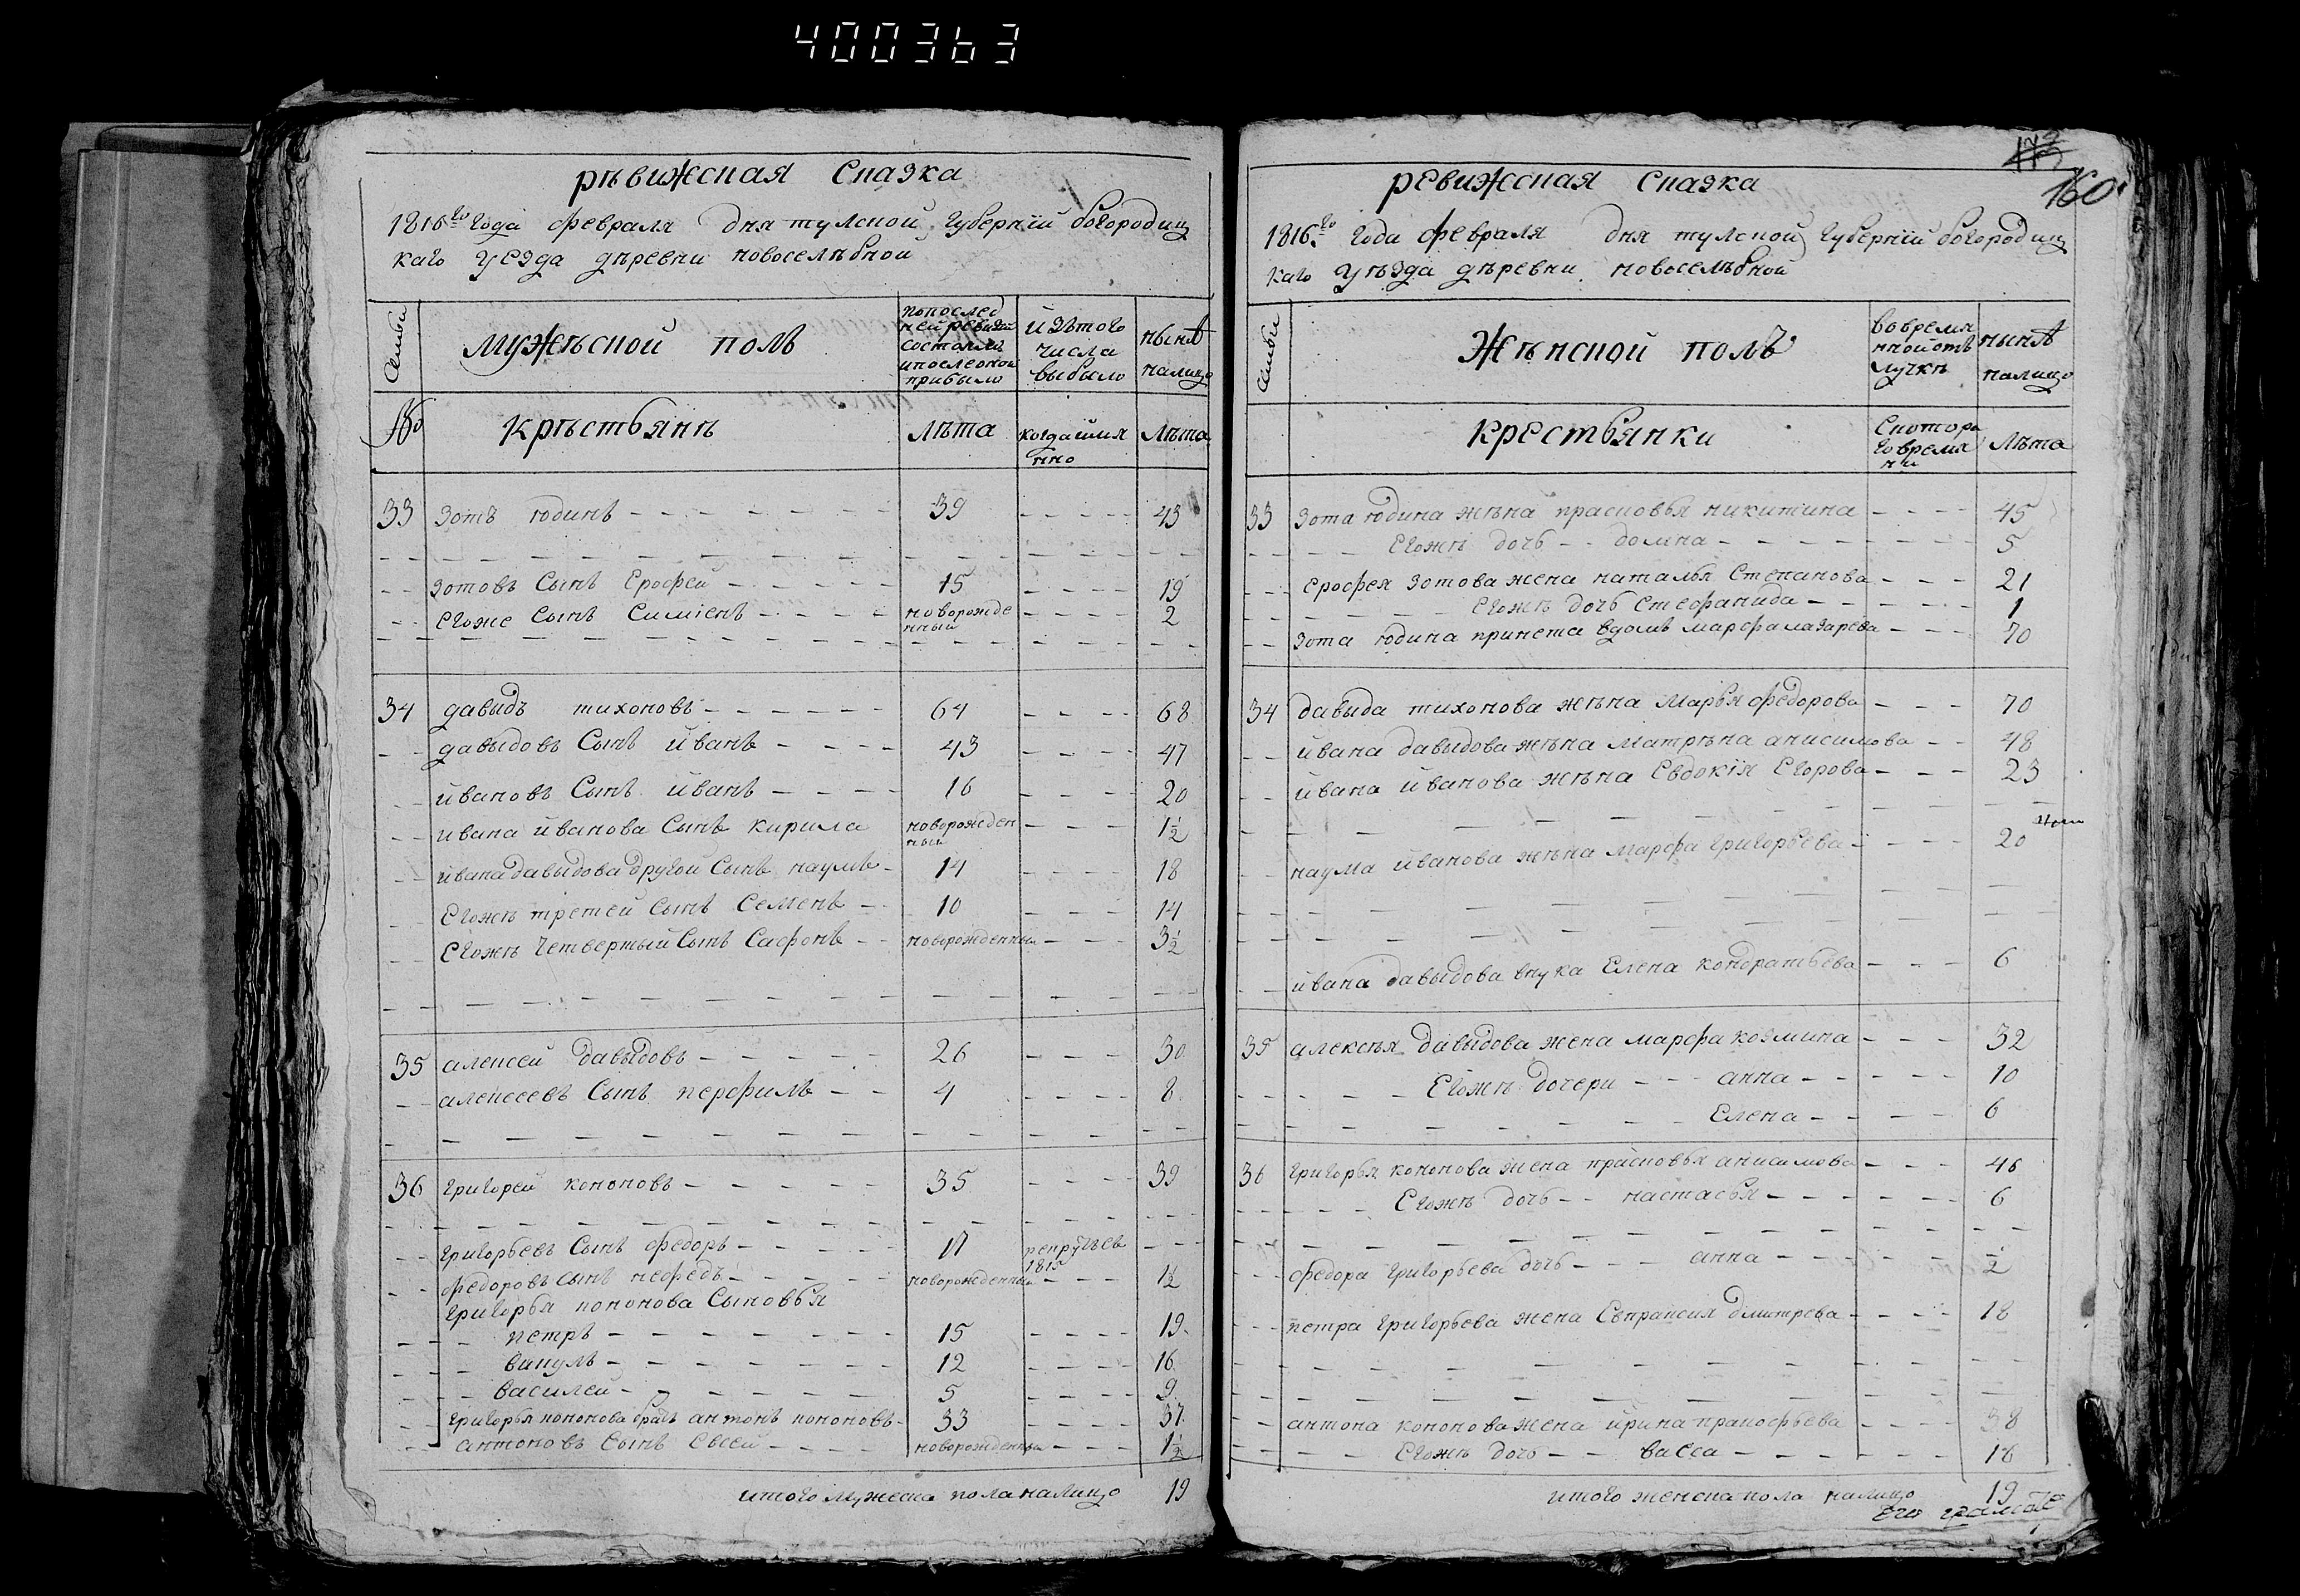 400363
рѣвижская Сказка
1816го года февраля дня тулской губернiи богородиц
каго уезда дѣревни новоселѣбной
Семьи
мужѣской полъ
попослед
ней ревизiи
состояло
ипослеоной
прибыло
изъ того
числа
выбыло
нынѣ
налицо
№
Крѣстьянѣ
лѣта
когдаимя
нно
лѣта
33 Зотъ юдинъ 39 43
Зотовъ Сынъ Ерофей 15 19
Егоже Сынъ Симiенъ новорожде
нный 2
34 давыдъ тихоновъ 64 68
давыдовъ Сынъ иванъ 43 47
ивановъ Сынъ иванъ 16 20
ивана иванова Сынъ кирила новорожден
ный 1½
ивана давыдова другой Сынъ наумъ 14 18
Егожѣ третей Сынъ Семенъ 10 14
Егожѣ Четвертый Сынъ Сафонъ новорожденный 3½
35 алексей давыдовъ 26 30
алексеевъ Сынъ перфилъ 4 8
36 григорей кононовъ 35 39
григорьевъ Сынъ федоръ 17
1815
федоровъ Сынъ нефедъ новорожденный 1½
григорья кононова Сыновья
петръ 15 19
викулъ 12 16
василей 5 9
григорья кононова братъ антонъ кононовъ 33 37
антоновъ Сынъ Евсей новорожденный 1½
итого мужеска пола налицо 19
173
160
ревижская Сказка
1816го года февраля дня тулской губернiи богородиц
каго уѣзда дѣревни новоселѣбной
Семьи
Жѣнской полъ
вовремя
нной отъ
лучкѣ
нынѣ
налицо
крестьянки
Скотора
го время
ни
лѣта
33 Зота юдина жѣна прасковья никитина 45
Егожѣ дочь домна 5
Ерофея Зотова жена наталья Степанова 21
Егожѣ дочь Стефанида 1
Зота юдина принета вдомъ марфа лазарева 70
34 давыда тихонова жѣна Марья федорова 70
ивана давыдова жѣна Матрѣна анисимова 48
ивана иванова жѣна Евдокiя Егорова 23
наума иванова жѣна Марфа григорьева 20
ивана давыдова внука Елена кондратьева 6
35 алексѣя давыдова жена марфа козмина 32
Егожѣ дочери анна 10
Елена 6
36 григорья кононова жена прасковья анисимова 46
Егожѣ дочь настасья 6
федора григорьева дочь анна ½
петра григорьева жена Евпраксия дмитрева 18
антона кононова жена ирина пракофьева 38
Егожѣ дочь васса 16
итого женска пола налицо 19